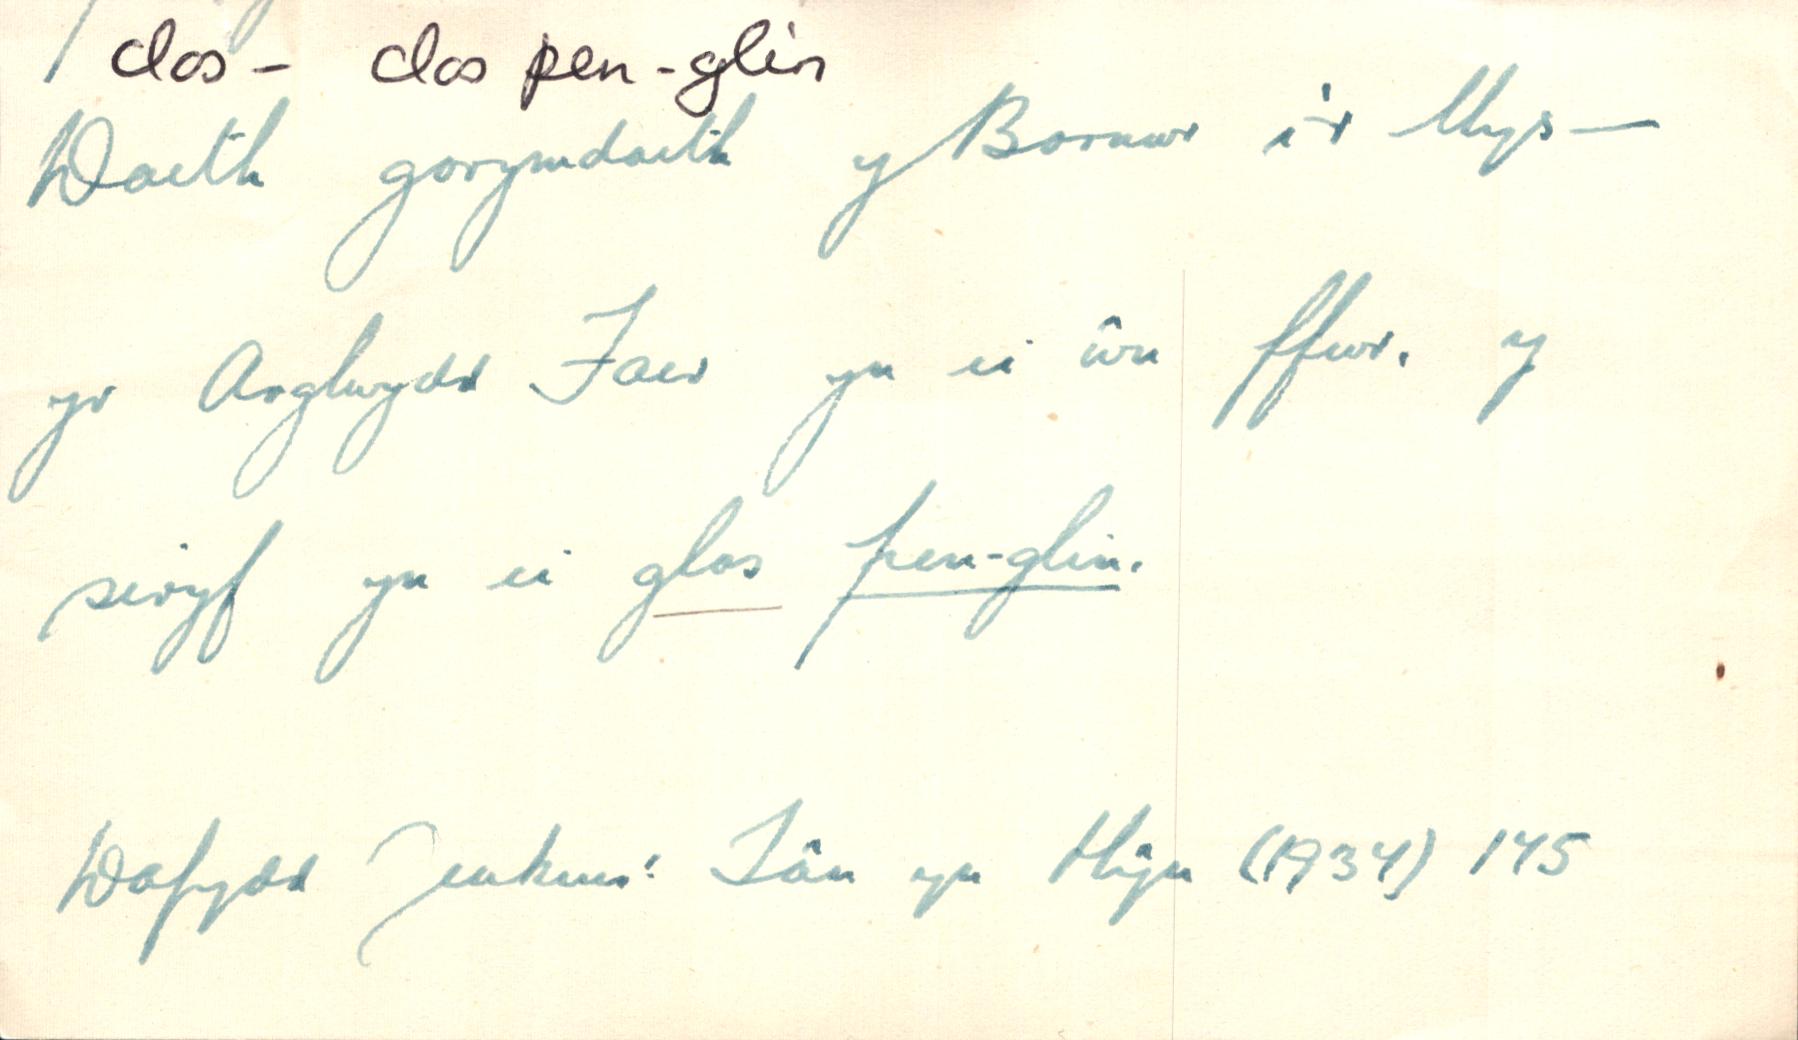 clos - clos pen-glin
Daeth gorymdaith y Barnwr i'r Llys —
yr Arglwydd Faer yn ei ŵn ffwr. y
siryf yn ei glos pen-glin.
Dafydd Jenkins: Tân yn Llŷn (1937) 145